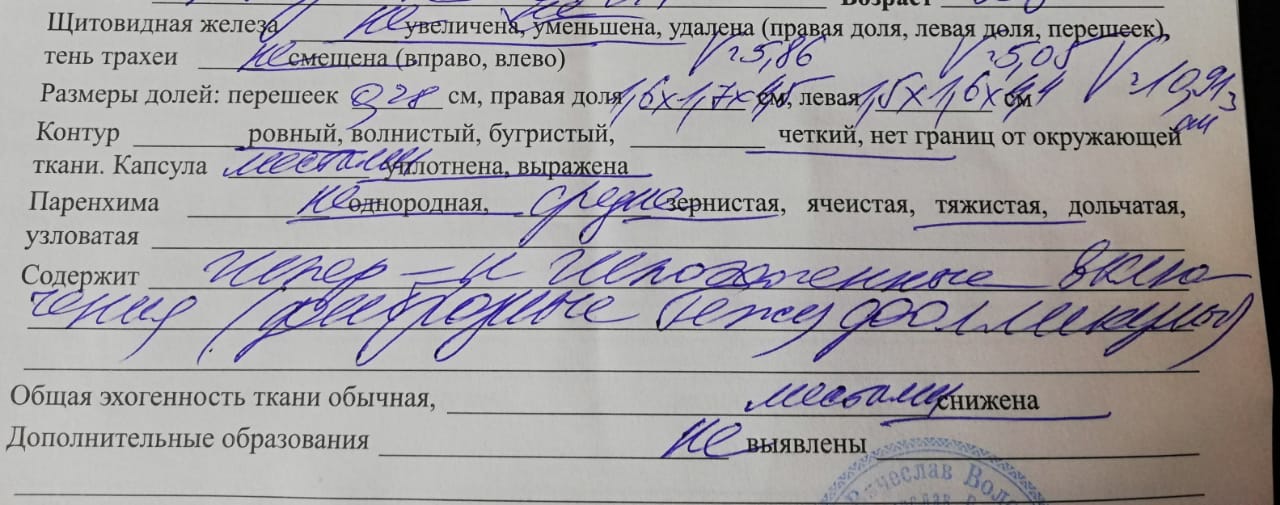 Возраст
Щитовидная железа не увеличена, не уменьшена, удалена (правая доля, левая доля, перешеек),
тень трахеи не смещена (вправо, влево) V=5,86 V=5,05 V=10,91 см3
Размеры долей: перешеек 0,28 см, правая доля 1,6х1,7х4,5 см, левая 1,5х1,6х4,4 см
Контур ровный, волнистый, бугристый, четкий, нет границ от окружающей
ткани. Капсула местами уплотнена, выражена
Паренхима не однородная, средне зернистая, ячеистая, тяжистая, дольчатая,
узловатая
Содержит гипер- и гипоэхогенные вклю-
чения (фиброзные тяжи, фолликулы)
Общая эхогенность ткани обычная, местами снижена
Дополнительные образования не выявлены
Вячеслав Воло